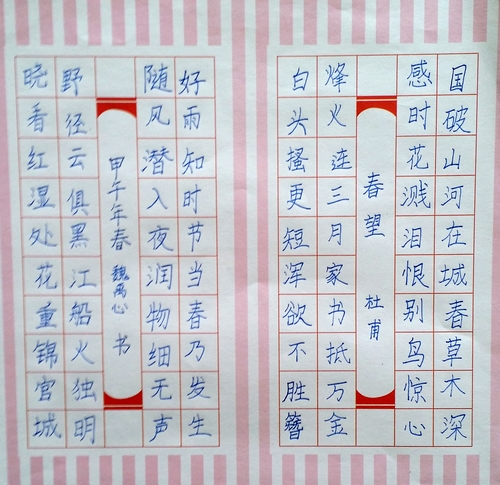 国破山河在城春草木深
感时花溅泪恨别鸟惊心
春望 杜甫
烽火连三月家书抵万金
白头搔更短浑欲不胜簪
好雨知时节当春乃发生
随风潜入夜润物细无声
甲午年春 魏禹心 书
野径云俱黑江船火独明
晓看红湿处花重锦官城